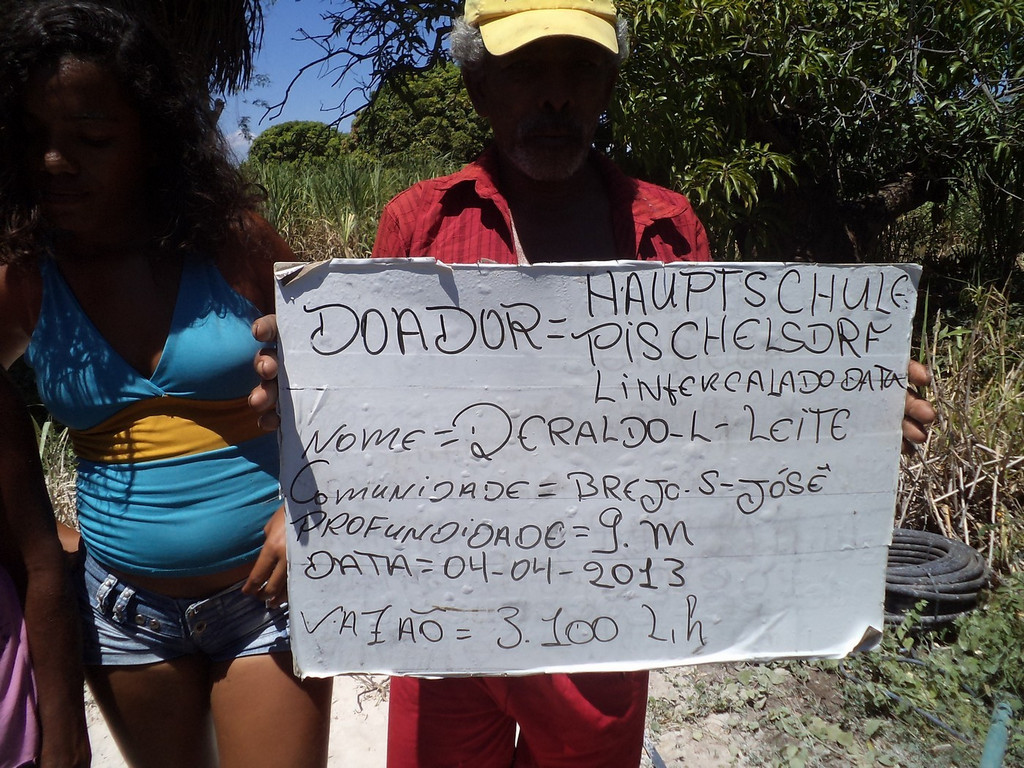 HAUPTSCHULE
DOADOR = PISCHELSDRF
LINTERCALADO DATA
NOME = DERALDO-L-LEITE
COMUNIDADE = BREJO-S-JOSÉ
PROFUNDIDADE = 9.m
DATA = 04-04-2013
VAZÃO = 3.100 L,h